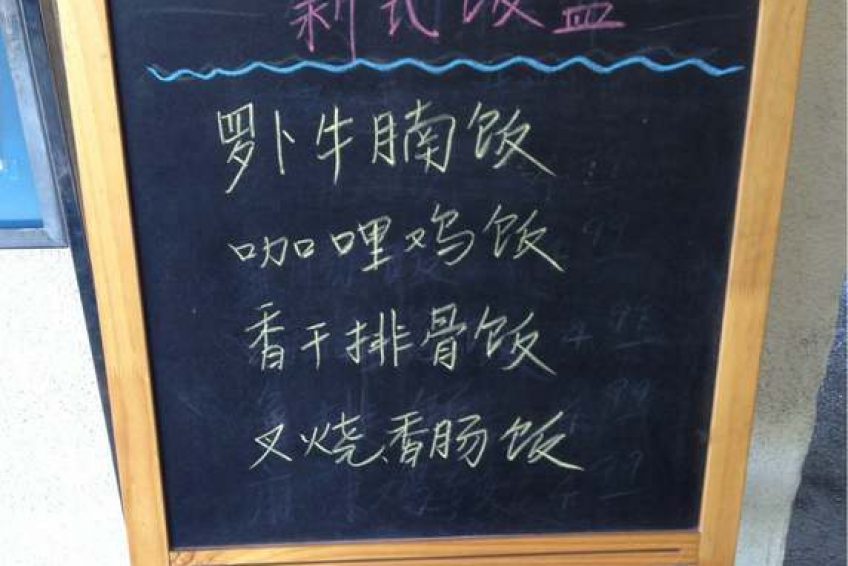 新式饭盒
罗卜牛腩饭
咖哩鸡饭
香干排骨饭
叉烧香肠饭